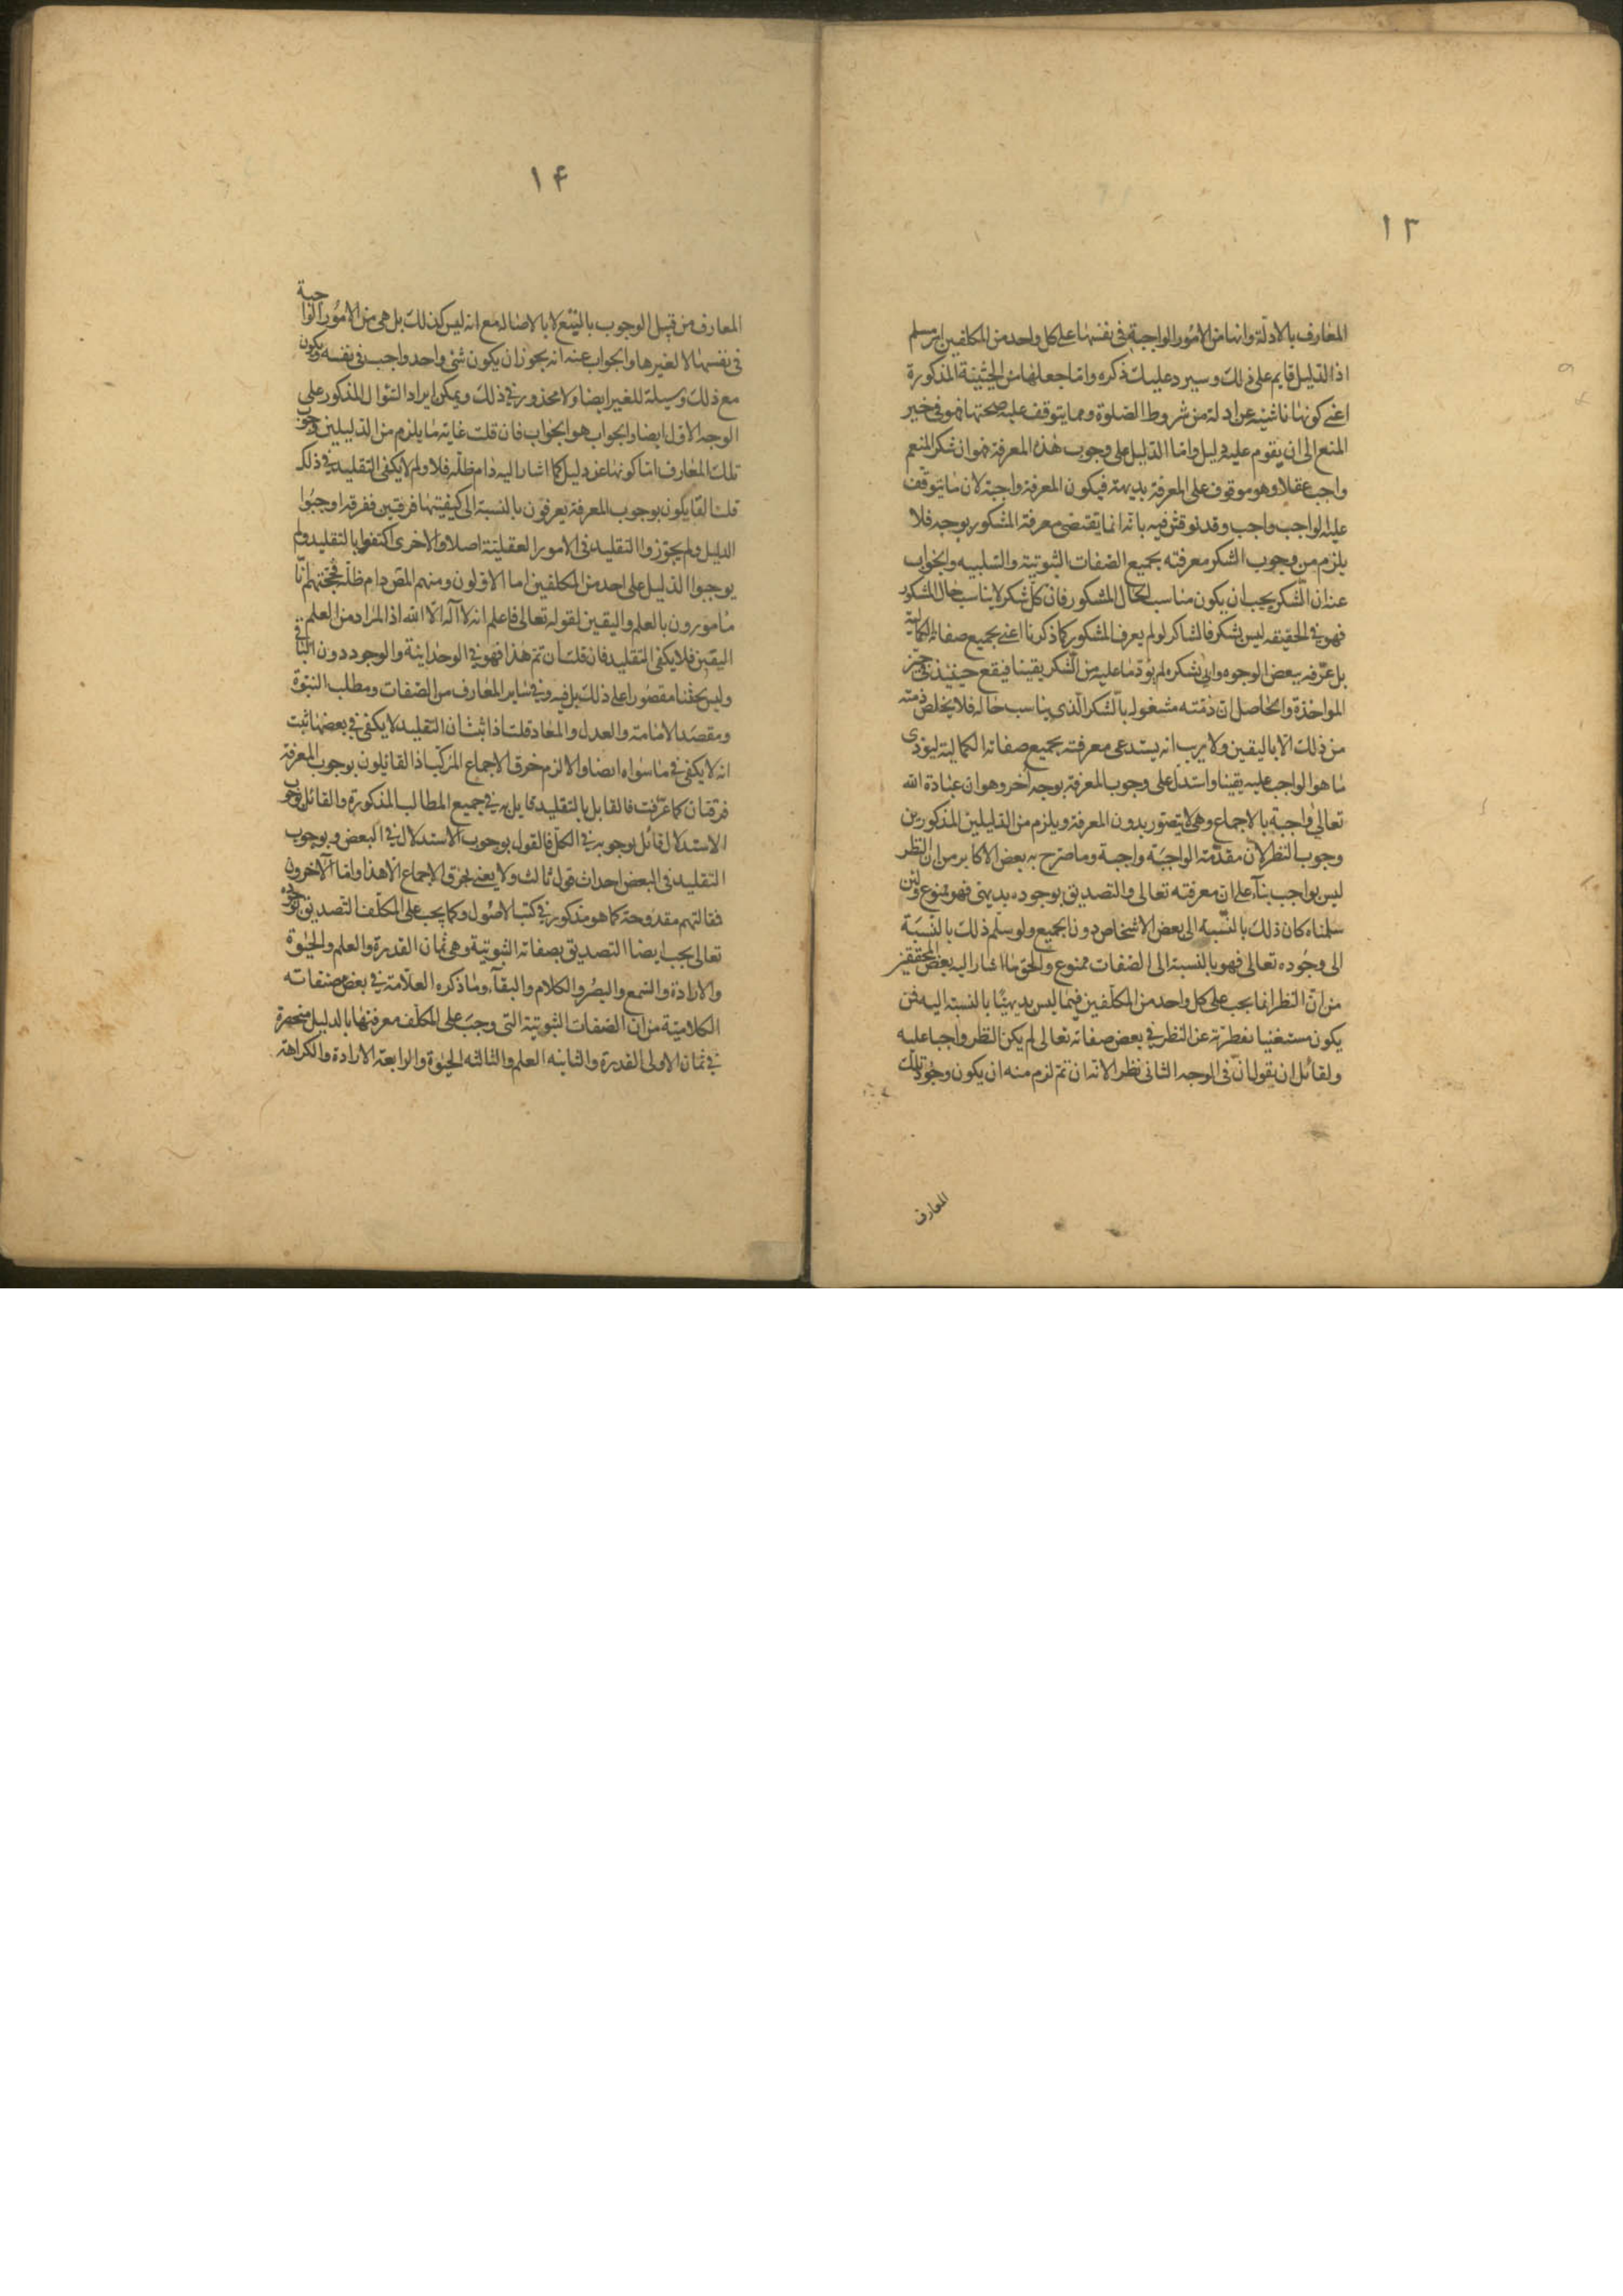 ١٣
المعارف بالادلة وانها من الامور الواجبة في نفسها على كل واحد من المكلفين امر مسلم
اذ الدليل قايم على ذلك وسيرد عليك ذكره واما جعلها من الحيثية المذكورة
اعني كونها ناشئة عن ادلة من شروط الصلوة ومما يتوقف عليه صحتها فهو في حيز
المنع الى ان يقوم عليه دليل واما الدليل على وجوب هذه المعرفة فهو ان شكر المنعم
واجب عقلا وهو موقوف على المعرفة بديهة فيكون المعرفة واجبة لان ما يتوقف
عليه الواجب واجب وقد نوقش فيه بانه انما يقتضي معرفة المشكور بوجه فلا
يلزم من وجوب الشكر معرفته بجميع الصفات الثبوتية والسلبيه والجواب
عنه ان الشكر يجب ان يكون مناسب لحال المشكور فان كل شكر لا يناسب حال المشكور
فهو في الحقيقه ليس بشكر فالشاكر لو لم يعرف المشكور كما ذكرنا اعني بجميع صفاته الكمالية
بل عرفه ببعض الوجوه واتى بشكره لم يؤد ما عليه من الشكر يقينا فيقع حينئذ في حيز
المواخذة والحاصل ان ذمته مشغوله بالشكر الذي يناسب حاله فلا يخلص ذمته
من ذلك الا باليقين ولا يريب انه يستدعى معرفته بجميع صفاته الكمالية ليؤدى
ما هو الواجب عليه يقينا واستدل على وجوب المعرفة بوجه آخر وهو ان عبادة الله
تعالى واجبة بالاجماع وهي لا يتصور بدون المعرفة ويلزم من الدليلين المذكورين
وجوب النظر لان مقدمة الواجبة واجبة وما صرح به بعض الاكابر من ان النظر
ليس بواجب بناء على ان معرفته تعالى والتصديق بوجوده بديهي فهو ممنوع ولئن
سلمناه كان ذلك بالنسبه الى بعض الاشخاص دون الجميع ولو سلم ذلك بالنسبة
الى وجوده تعالى فهو بالنسبة الى الصفات ممنوع والحق ما اشار اليه بعض المحققين
من ان النظر انما يجب على كل واحد من المكلفين فيما ليس بديهيا بالنسبة اليه فمن
يكون مستغنيا بفطرته عن النظر في بعض صفاته تعالى لم يكن النظر واجبا عليه
ولقائل ان يقول ان في الوجه الثاني نظر الانه ان تم لزم منه ان يكون وجوب تلك
المعارف
١۴
المعارف من قبيل الوجوب بالتبع لا بالاصالة مع انه ليس كذلك بل هي من الامور الواجبة
في نفسها لا لغيرها والجواب عنه انه يجوز ان يكون شئ واحد واجب في نفسه ويكون
مع ذلك وسيلة للغير ايضا ولا محذور في ذلك ويمكن ايراد السؤال المذكور على
الوجه الاول ايضا والجواب هو الجواب فان قلت غاية ما يلزم من الدليلين وجوب
تلك المعارف اما كونها عن دليل كما اشار اليه دام ظله فلا ولم لا يكفى التقليد في ذلك
قلت القايكون بوجوب المعرفة يعرفون بالنسبة الى كيفيتها فرقتين ففرقه اوجبوا
الدليل ولم يجوزوا التقليد في الامور العقلية اصلا والاخرى اكتفوا بالتقليد ولم
يوجبوا الدليل على احد من المكلفين اما الاولون ومنهم المص دام ظله فحجتهم انا
مامورون بالعلم واليقين لقوله تعالى فاعلم انه لا اله الا الله اذ المراد من العلم
اليقين فلا يكفى التقليد فان قلت ان تم هذا فهو في الوحدانية والوجود دون الباقي
وليس بحثنا مقصورا على ذلك بل فيه وفي ساير المعارف من الصفات ومطلب النبوة
ومقصد الامامة والعدل والمعاد قلت اذا ثبت ان التقليد لا يكفى في بعضها ثبت
انه لا يكفى في ما سواه ايضا والا لزم خرق الاجماع المركب اذ القائلون بوجوب المعرفة
فرقتان كما عرفت فالقايل بالتقليد قايل به في جميع المطالب المذكورة والقائل بوجوب
الاستدلال قائل بوجوبه في الكل فالقول بوجوب الاستدلال في البعض وبوجوب
التقليد في البعض احداث قول ثالث ولا يعني بخرق الاجماع الا هذا واما الآخرون
فقالتهم مقدوحة كما هو مذكور في كتب الاصول وكما يجب على المكلف التصديق بوجوده
تعالى يجب ايضا التصديق بصفاته الثبوتية وهي ثمان القدرة والعلم والحيوة
والارادة والسمع والبصر والكلام والبقاء وما ذكره العلامة في بعض مصنفاته
الكلامية من ان الصفات الثبوتية التي وجب على المكلف معرفتها بالدليل منحصرة
في ثمان الاولى القدرة والثانيه العلم والثالثه الحيوة والرابعة الارادة والكراهة